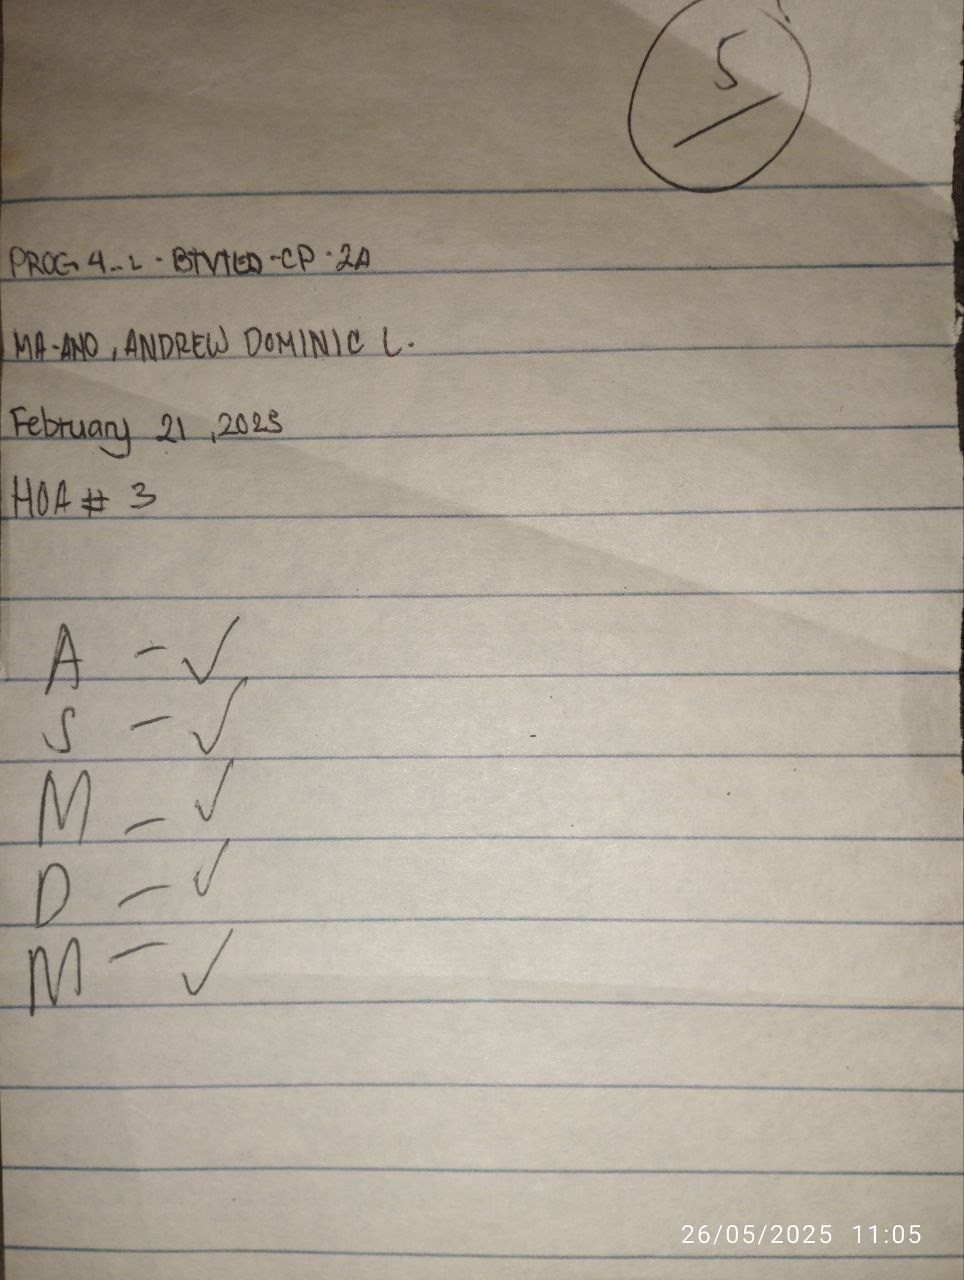 5
PROG 4..L - BTVTED -CP - 2A
MA-ANO , ANDREW DOMINIC L.
February 21 , 2025
HOA # 3
A - ✓
S - ✓
M - ✓
D - ✓
M - ✓
26/05/2025 11:05